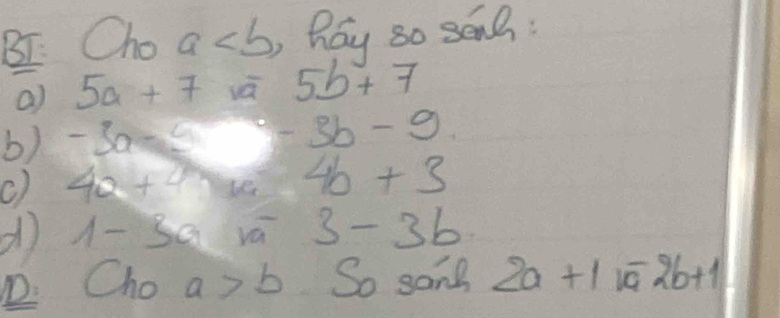 BT: Cho a < b, hãy so sánh:
a) 5a + 7 và 5b + 7
b) -3a - - 3b - 9.
c) 4a + và 4b + 3
d) 1 - 3a và 3 - 3b
D: Cho a > b. So sánh 2a + 1 và 2b+1